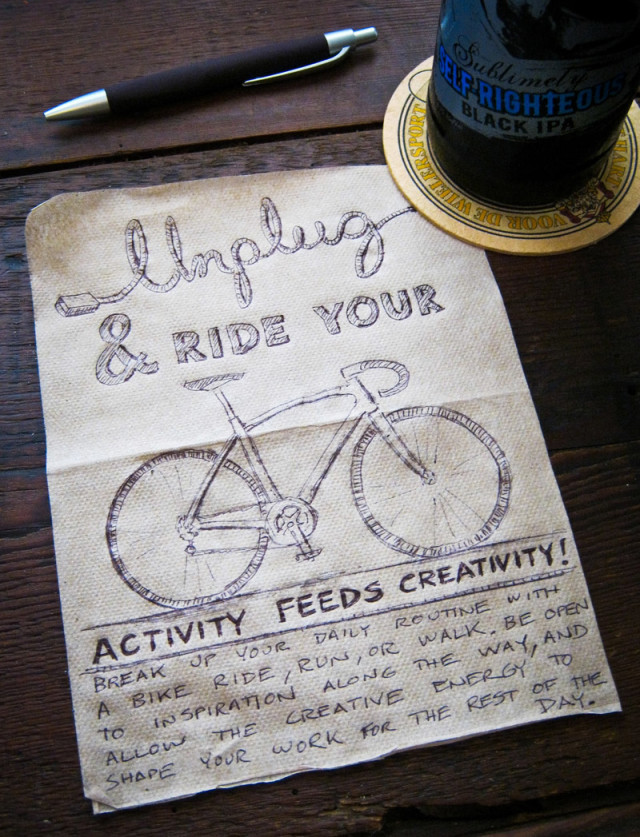 Sublimely
SELF-RIGHTEOUS
BLACK IPA
VOOR DE WIELERSPORT
Unplug
& RIDE YOUR
ACTIVITY FEEDS CREATIVITY!
BREAK UP YOUR DAILY ROUTINE WITH
A BIKE RIDE, RUN, OR WALK. BE OPEN
TO INSPIRATION ALONG THE WAY, AND
ALLOW THE CREATIVE ENERGY TO
SHAPE YOUR WORK FOR THE REST OF THE
DAY.